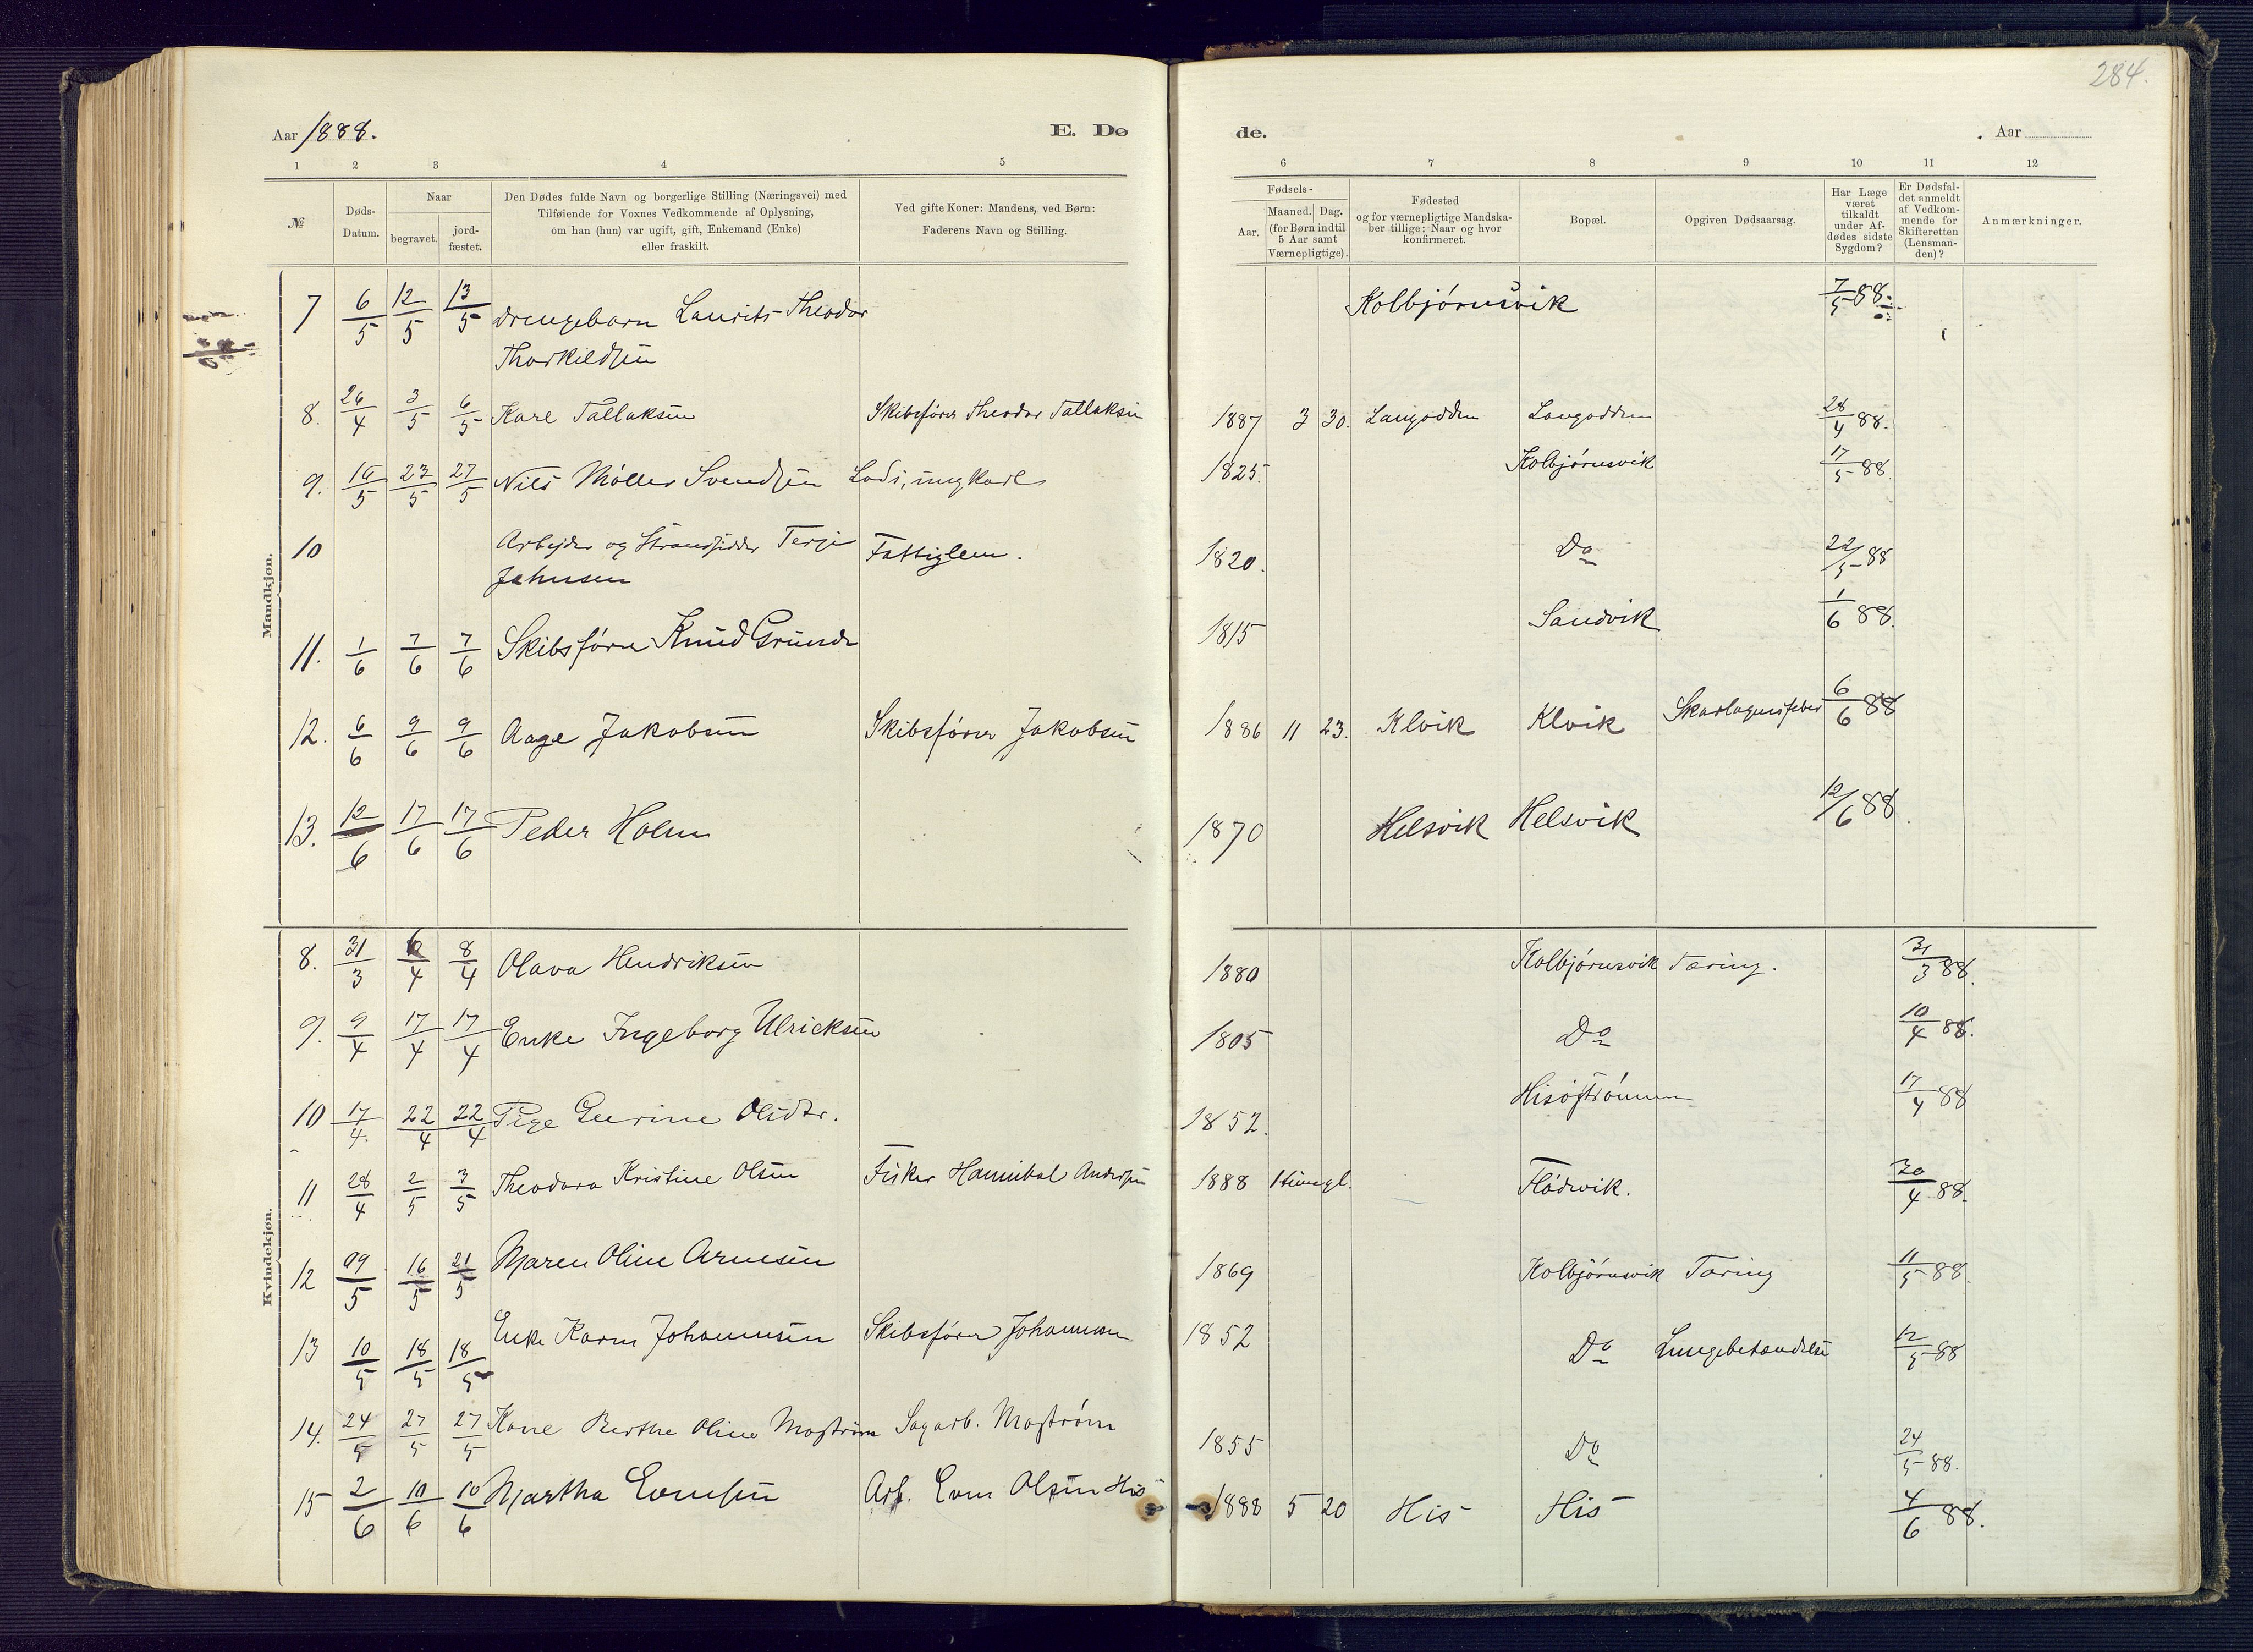 284.
Aar 1888. E. Dø de. Aar
1 2 3 4 5 6 7 8 9 10 11 12
№
Døds-Datum.
Naar
begravet.
jord-fæstet.
Den Dødes fulde Navn og borgerlige Stilling (Næringsvei) med
Tilføiende for Voxnes Vedkommende af Oplysning,
om han (hun) var ugift, gift, Enkemand (Enke)
eller fraskilt.
Ved gifte Koner: Mandens, ved Børn:
Faderens Navn og Stilling.
Fødsels-
Aar.
Maaned. Dag.
(for Børn indtil
5 Aar samt
Værnepligtige).
Fødested
og for værnepligtige Mandska-
ber tillige: Naar og hvor
konfirmeret.
Bopæl.
Opgiven Dødsaarsag.
Har Læge
været
tilkaldt
under Af-
dødes sidste
Sygdom?
Er Dødsfal-
det anmeldt
af Vedkom-
mende for
Skifteretten
(Lensman-
den)?
Anmærkninger.
Mandkjøn.
7 6/5 12/5 13/5 Drengebarn Laurits Theodor Kolbjørnsvik 7/5 88.
Thorkildsen
8. 26/4 3/5 6/5 Kare Tallaksen Skibsfører Theodor Tallaksen 1887 3 30. Langodden Langodden 28/4 88.
9. 16/5 23/5 27/5 Nils Møller Svendsen Lods, ungkarl 1825. Kolbjørnsvik 17/5 88.
10 Arbejder og Strandsidder Terje Fattiglem. 1820. Do 22/5 88
Johnsen
11. 1/6 7/6 7/6 Skibsfører Knud Grunde 1815 Sandvik 1/6 88.
12. 6/6 9/6 9/6 Aage Jakobsen Skibsfører Jakobsen 1886 11 23. Klvik Klvik Skarlagensfeber 6/6 88
13. 12/6 17/6 17/6 Peder Holm 1870 Helsvik Helsvik 12/6 88.
Kvindekjøn.
8. 31/3 /4 8/4 Olava Hendriksen 1880 Kolbjørnsvik Tæring. 31/3 88.
9. 9/4 17/4 17/4 Enke Ingeborg Ulricksen 1805 Do 10/4 88.
10 17/4. 22/4 22/4 Pige Gurine Olsdtr. 1852. Hisøstrømmen 17/4 88
11 28/4 2/5 3/5 Theodora Kristine Olsen Fisker Hannibal Andersen 1888 1 time gl. Flødvik. 30/4 88.
12 09/5 16/5 21/5 Maren Oline Arnesen 1869 Kolbjørnsvik Tæring 11/5 88.
13 10/5 18/5 18/5 Enke Karen Johannesen Skibsfører Johannesen 1852 Do Lungebetændelse 12/5 88
14. 24/5 27/5 27/5 Kone Berthe Oline Mostrøm Sagarb. Mostrøm 1855 Do 24/5 88.
15 2/6 10/6 10/6 Martha Evensen Arb. Even Olsen His 1888 5 20 His His 4/6 88.